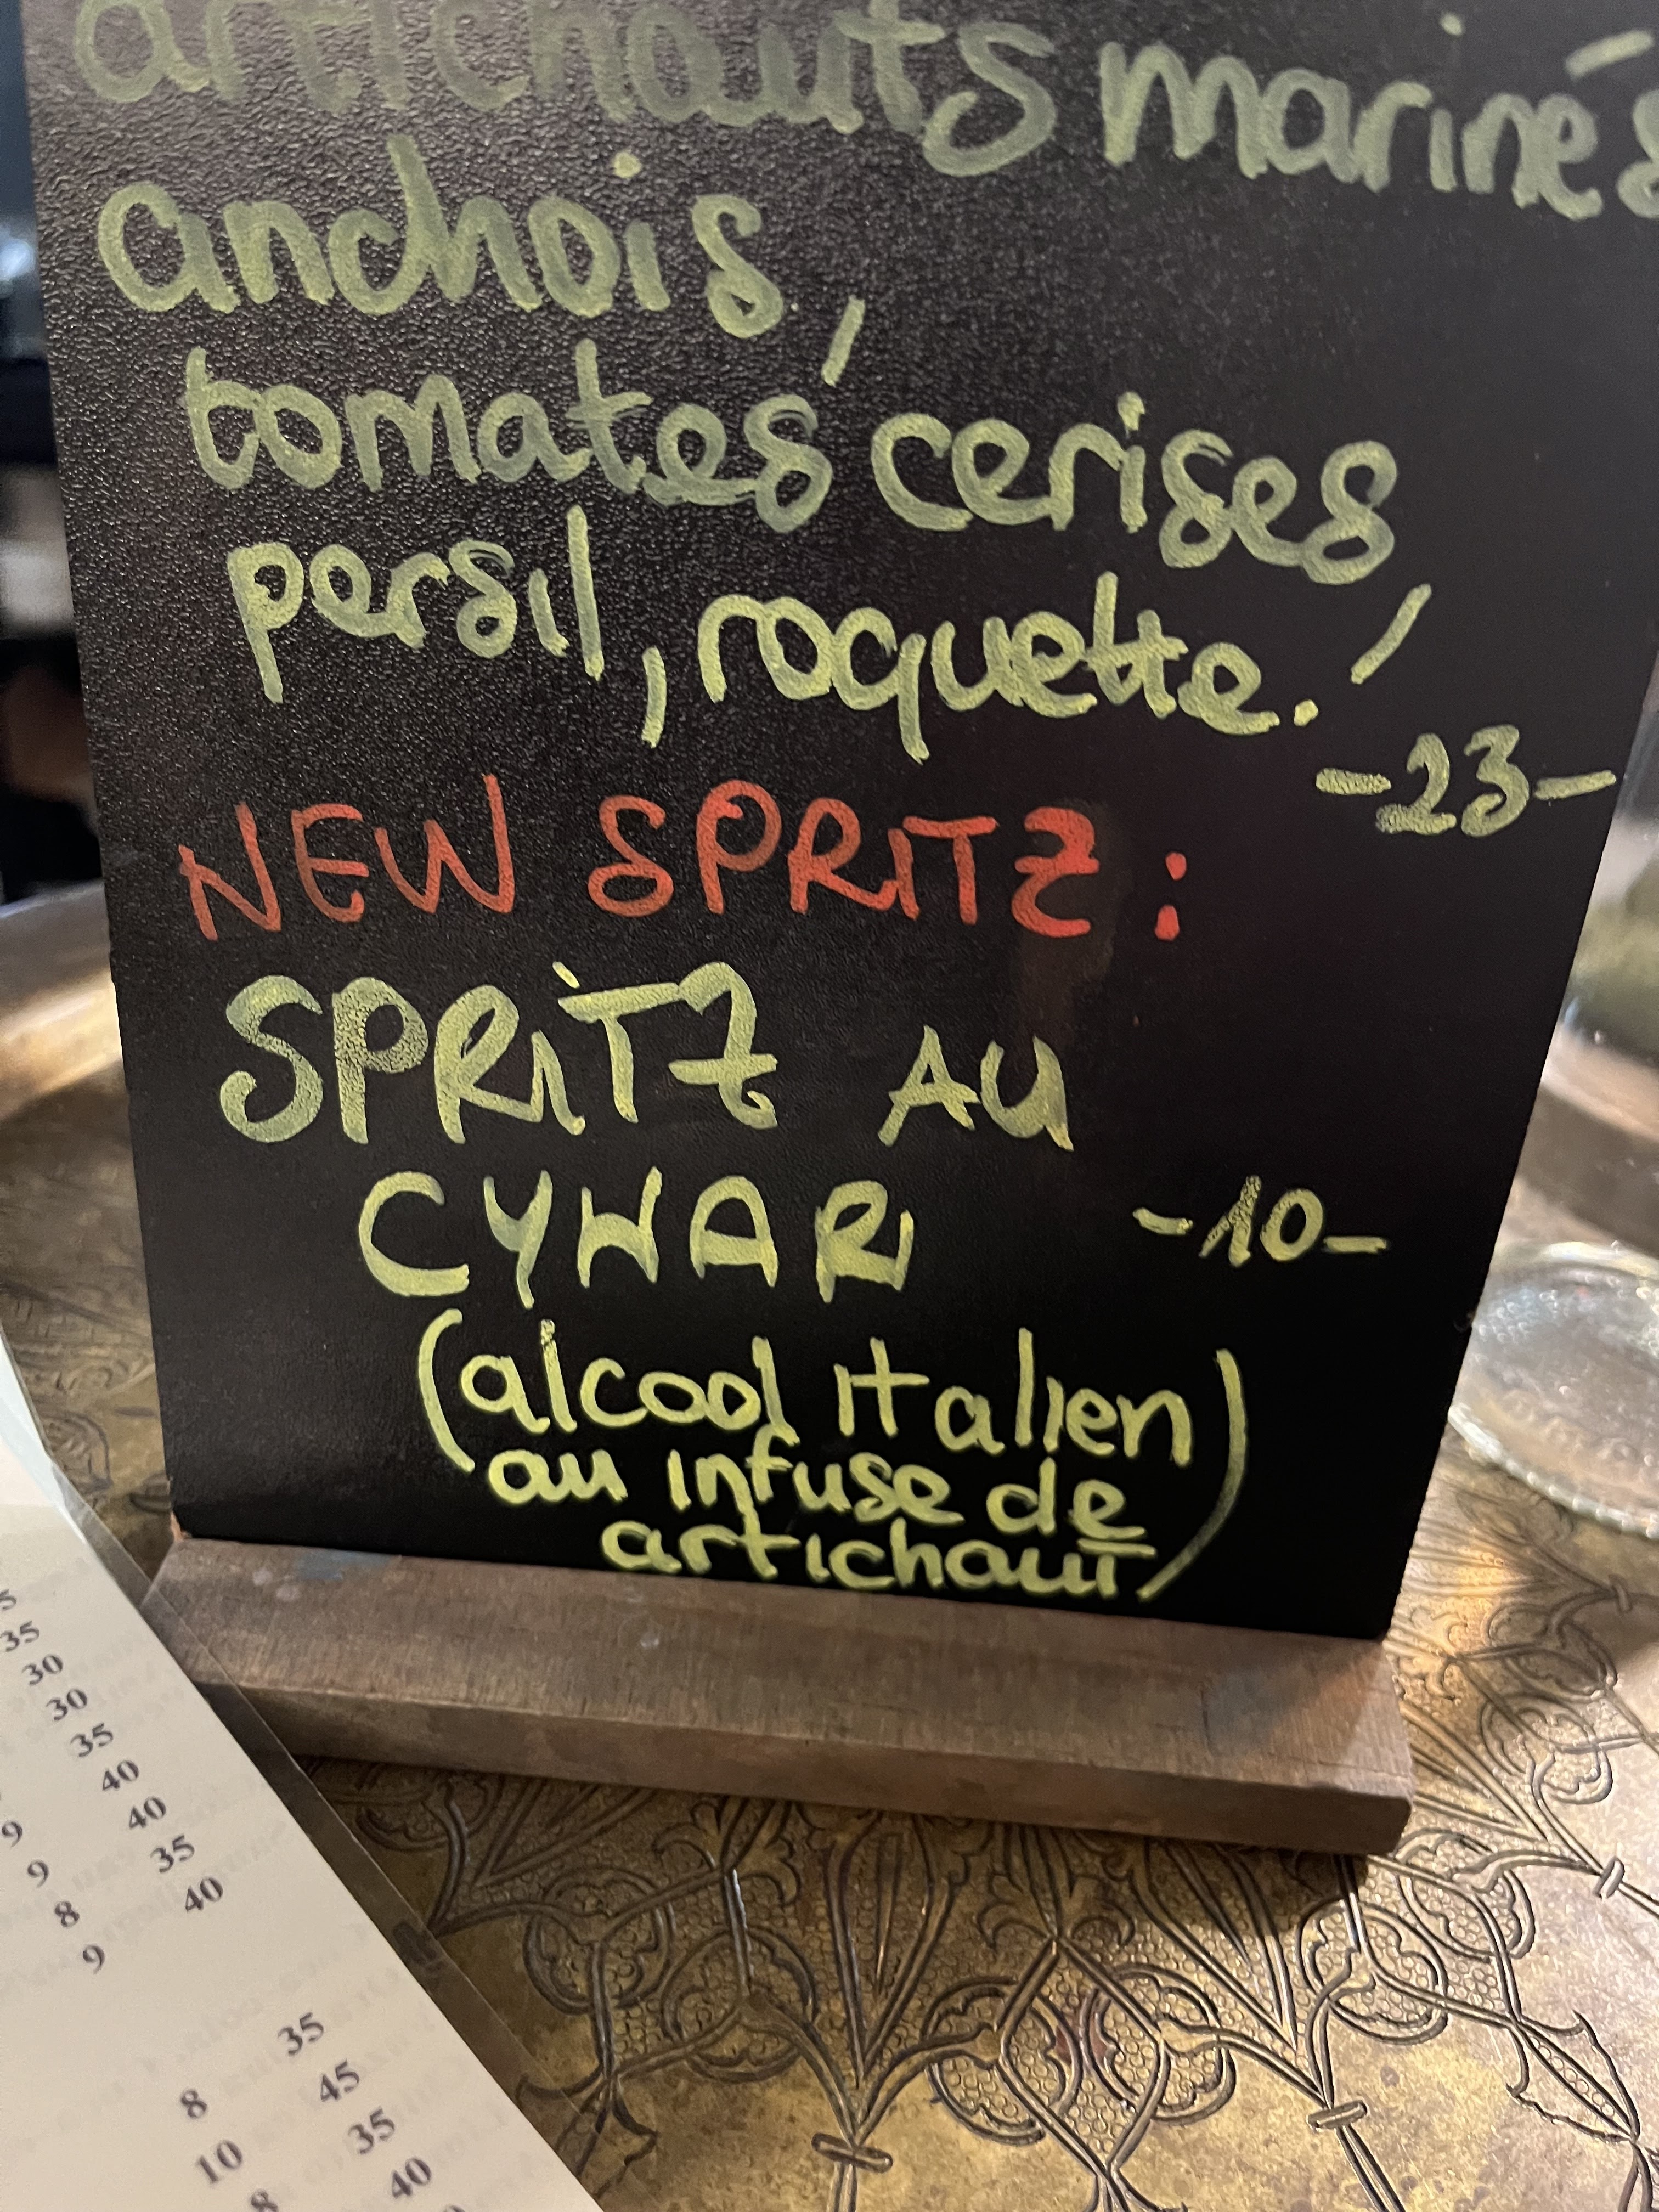 artichauts marinés
anchois,
tomates cerises,
persil, roquette.
-23-
NEW SPRITZ :
SPRITZ AU
CYNAR -10-
(alcool italien)
au infuse de
artichaut)
5
35
30
30
35
40
9 40
9 35
8 40
9
35
8 45
10 35
8 40